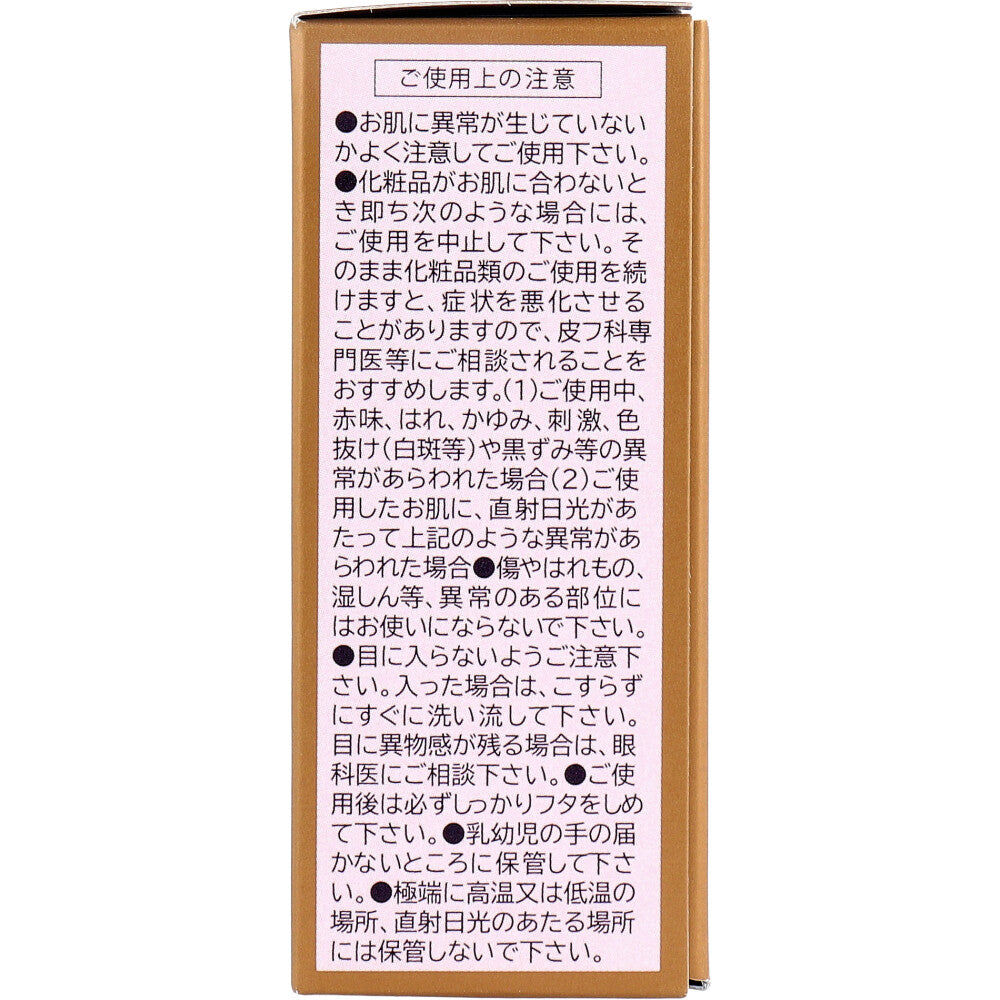 ご使用上の注意
●お肌に異常が生じていない
かよく注意してご使用下さい。
●化粧品がお肌に合わないと
き即ち次のような場合には、
ご使用を中止して下さい。そ
のまま化粧品類のご使用を続
けますと、症状を悪化させる
ことがありますので、皮フ科専
門医等にご相談されることを
おすすめします。(1)ご使用中、
赤味、はれ、かゆみ、刺激、色
抜け(白斑等)や黒ずみ等の異
常があらわれた場合(2)ご使
用したお肌に、直射日光があ
たって上記のような異常があ
らわれた場合●傷やはれもの、
湿しん等、異常のある部位に
はお使いにならないで下さい。
●目に入らないようご注意下
さい。入った場合は、こすらず
にすぐに洗い流して下さい。
目に異物感が残る場合は、眼
科医にご相談下さい。●ご使
用後は必ずしっかりフタをしめ
て下さい。●乳幼児の手の届
かないところに保管して下さ
い。●極端に高温又は低温の
場所、直射日光のあたる場所
には保管しないで下さい。